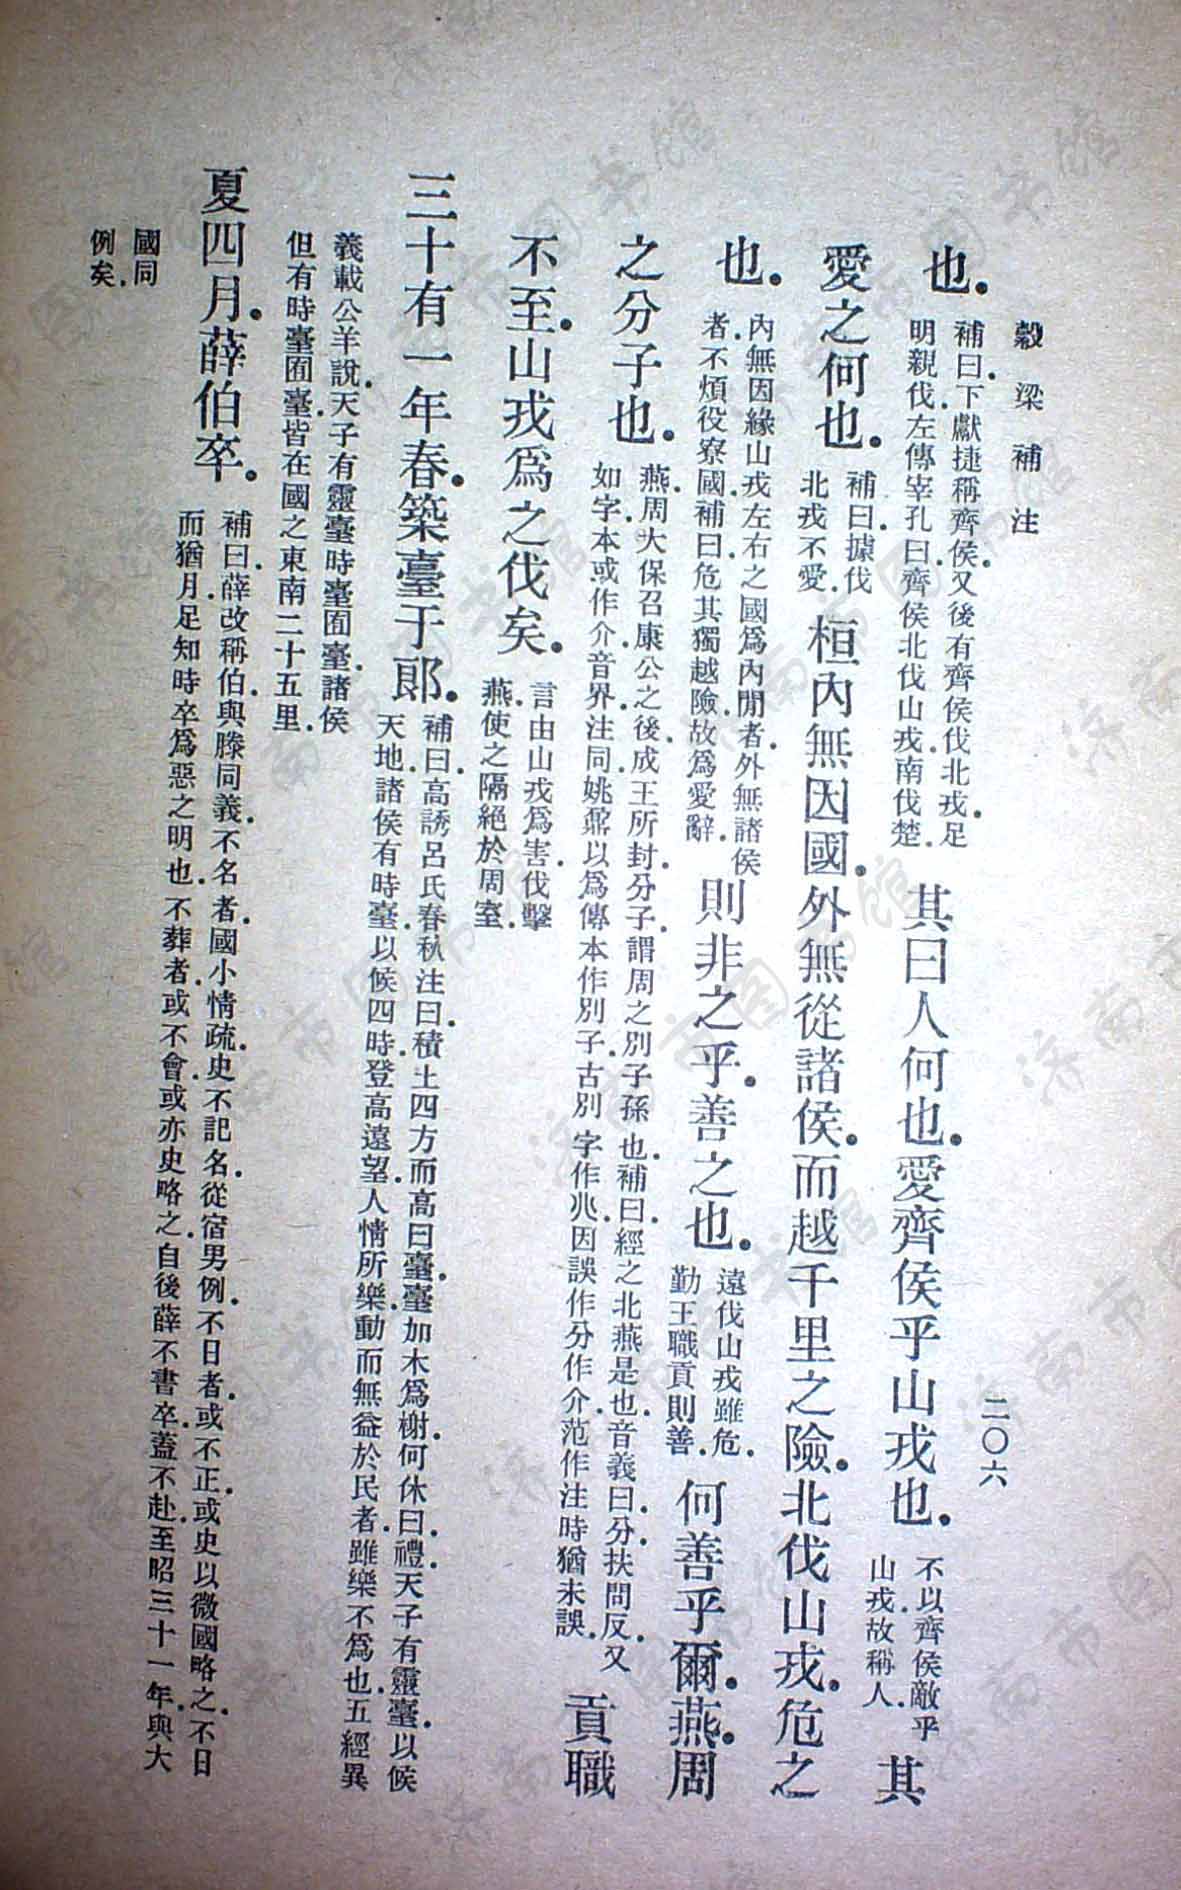 穀梁補注
二〇六
也．
補曰．下獻捷稱齊侯．又後有齊侯伐北戎．足
明親伐．左傳宰孔曰．齊侯北伐山戎．南伐楚．
其曰人何也．愛齊侯乎山戎也．
不以齊侯敵乎
山戎．故稱人．
其
愛之何也．
補曰．據伐
北戎不愛．
桓內無因國．外無從諸侯．而越千里之險．北伐山戎．危之
也．
內無因緣山戎左右之國爲內閒者．外無諸侯
者．不煩役寮國．補曰．危其獨越險．故爲愛辭．
則非之乎．善之也．
遠伐山戎雖危．
勤王職貢則善．
何善乎爾．燕．周
之分子也．
燕．周大保召康公之後．成王所封．分子．謂周之別子孫也．補曰．經之北燕是也．音義曰．分．扶問反．又
如字．本或作介．音界．注同．姚鼐以爲傳本作別子．古別字作兆．因誤作分作介．范作注時猶未誤．
貢職
不至．山戎爲之伐矣．
言由山戎爲害．伐擊
燕．使之隔絕於周室．
三十有一年春．築臺于郎．
補曰．高誘呂氏春秋注曰．積土四方而高曰臺．臺加木爲榭．何休曰．禮．天子有靈臺．以候
天地．諸侯有時臺．以候四時．登高遠望．人情所樂．動而無益於民者．雖樂不爲也．五經異
義載公羊說．天子有靈臺時臺囿臺．諸侯
但有時臺囿臺．皆在國之東南二十五里．
夏四月．薛伯卒．
補曰．薛改稱伯．與滕同義．不名者．國小情疏．史不記名．從宿男例．不日者．或不正．或史以微國略之．不日
而猶月．足知時卒爲惡之明也．不葬者．或不會．或亦史略之．自後薛不書卒．蓋不赴．至昭三十一年．與大
國同
例矣．